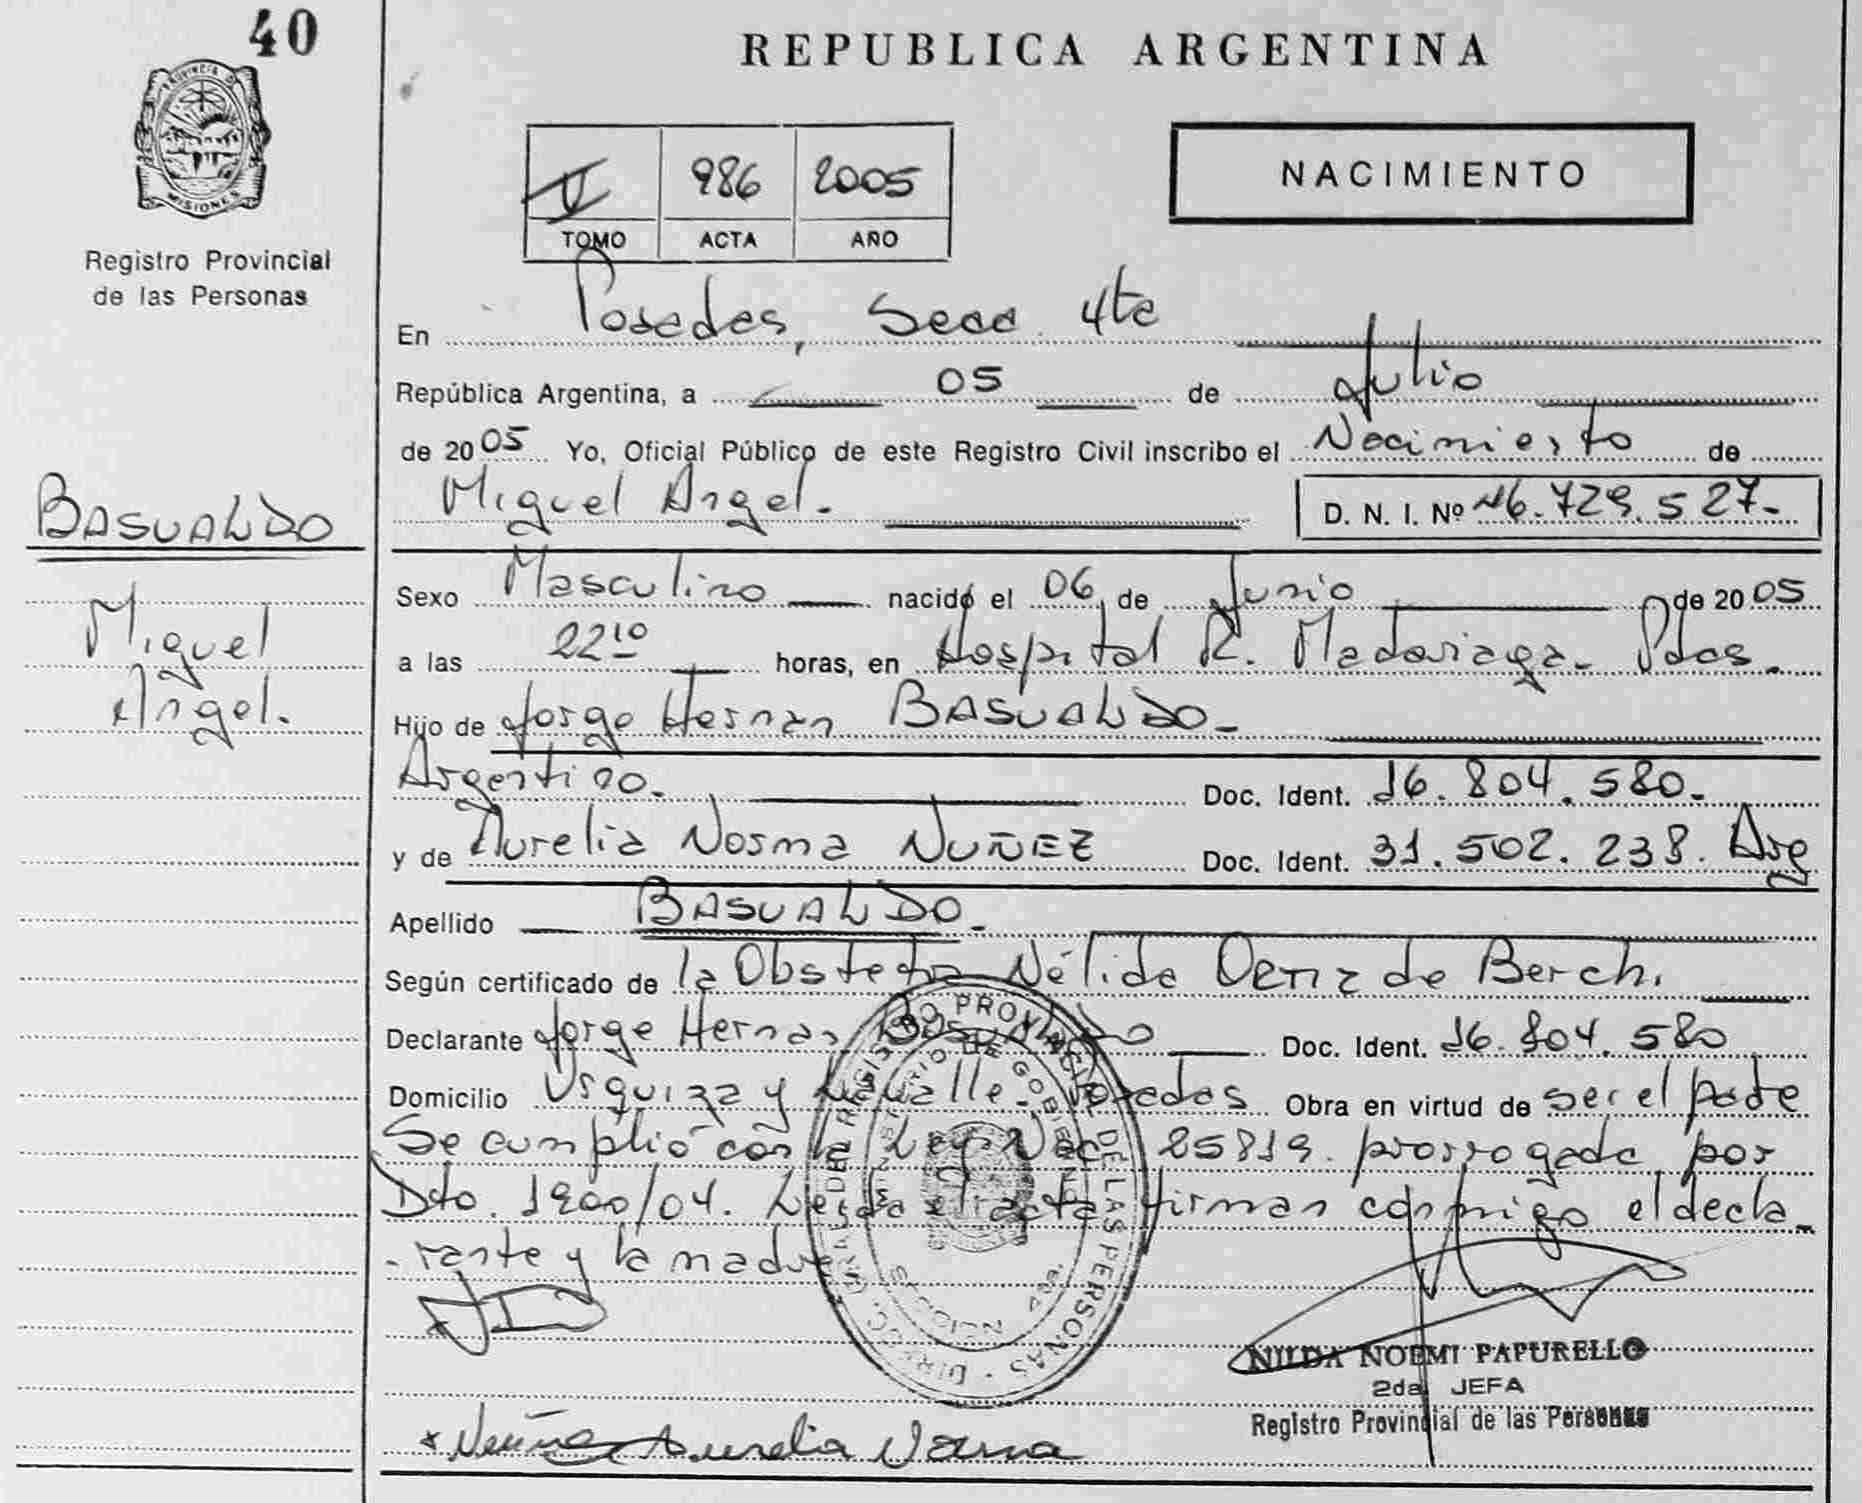 40
PROVINCIA D
MISIONES
Registro Provincial
de las Personas
BASUALDO
Miguel
Angel.
REPUBLICA ARGENTINA
V 986 2005
TOMO ACTA AÑO
NACIMIENTO
En Posadas, Secc. 4ta
República Argentina, a 05 de Julio
de 2005 Yo, Oficial Público de este Registro Civil inscribo el Nacimiento de
Miguel Angel. D. N. I. Nº 46.729.527-
Sexo Masculino nacido el 06 de Junio de 2005
a las 22 10 horas, en Hospital R. Madariaga- Pdas.
Hijo de Jorge Hernan BASUALDO-
Argentino. Doc. Ident. 16.804.580-
y de Aurelia Norma NUÑEZ Doc. Ident. 31.502.238. Arg
Apellido BASUALDO-
Según certificado de la Obstetra Nélida de Berch.
Declarante Jorge Hernan BASUALDO Doc. Ident. 16.804.580
Domicilio Urquiza y Lavalle-Posadas Obra en virtud de ser el padre
Se cumplió con la Ley Nac 25819. prorrogada por
Dto. 1900/04. Leida el acta firman conmigo el decla-
-rante y la madre
DIRECC. GRAL. DEL REGISTRO PROVINCIAL DE LAS PERSONAS
MINISTERIO DE GOBIERNO
NILDA NOEMI PAPURELLO
2da JEFA
Registro Provincial de las Personas
Nuñez Aurelia Norma